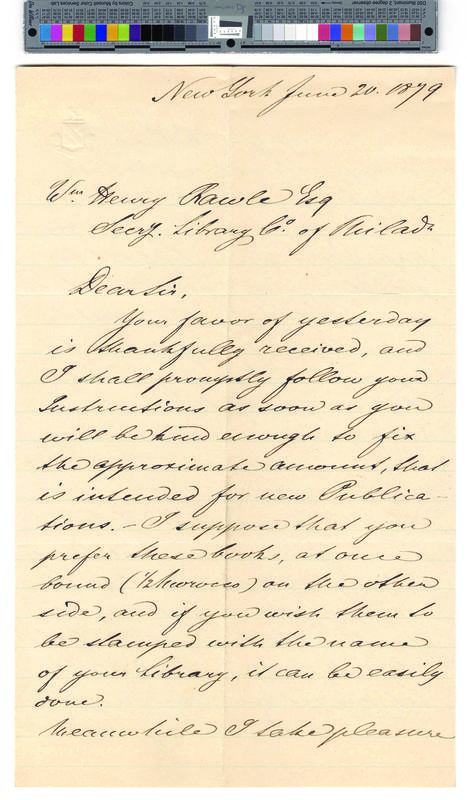 New York June 20. 1879
Wm. Henry Rawle Esq
Secry. Library Co. of Philada
Dear Sir,
Your favor of yesterday
is thankfully received, and
I shall promptly follow your
Instructions as soon as you
will be kind enough to fix
the approximate amount, that
is intended for new Publica-
tions. - I suppose that you
prefer these books, at once
bound (1/2 morocco) on the other
side, and if you wish them to
be stamped with the name
of your Library, it can be easily
done.
Meanwhile I take pleasure